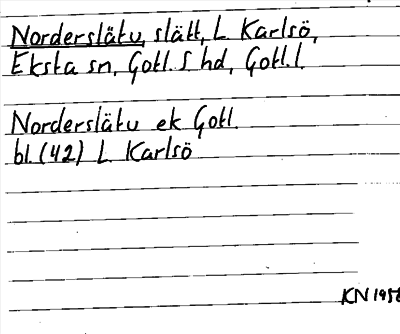 Norderslätu, slätt, L. Karlsö,
Eksta sn, Gotl. S hd, Gotl. l.
Norderslätu ek Gotl.
bl. (42) L. Karlsö
KN 1956